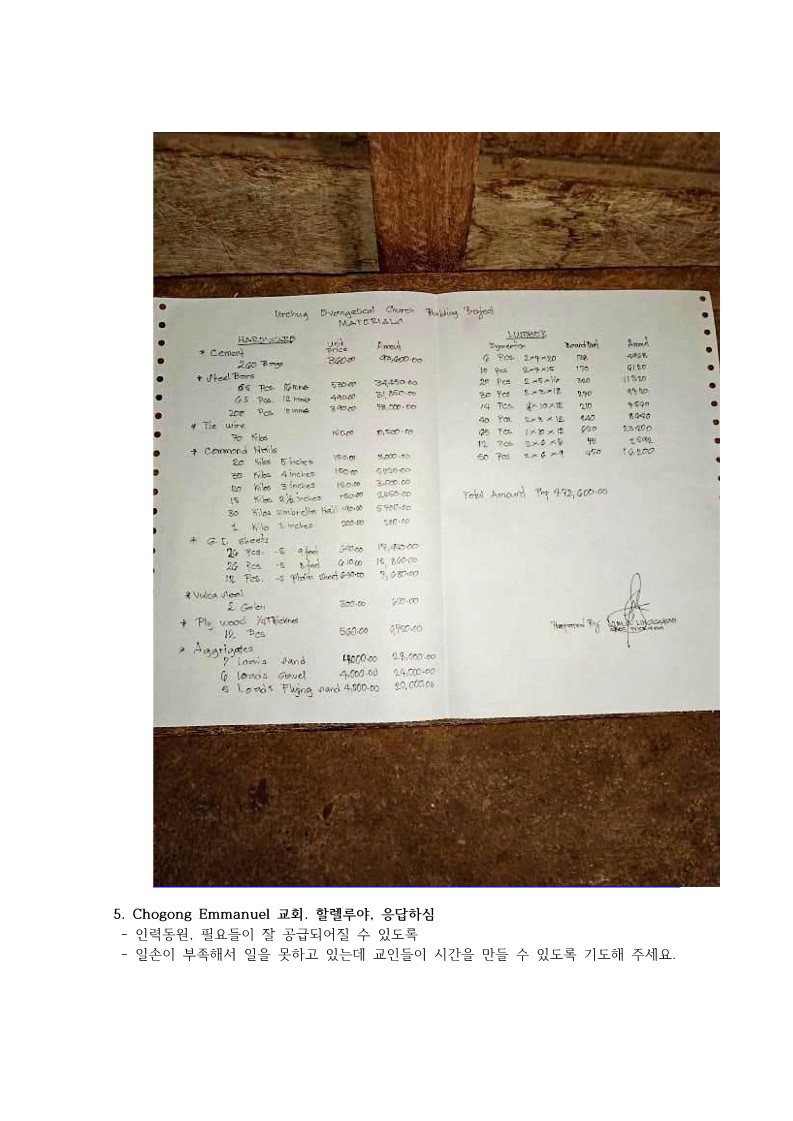 Urchug Evangelical Church Building Project
MATERIALS
HARDWARE Unit Price Amount
* Cement
260 Bags 360.00 93,600.00
* Steel Bars
65 Pcs. 16 mm 530.00 34,450.00
65 Pcs. 12 mm 490.00 31,850.00
200 Pcs. 10 mm 390.00 78,000.00
* Tie Wire
70 Kilos 150.00 10,500.00
* Command Nails
20 Kilos 5 inches 150.00 3,000.00
35 Kilos 4 inches 150.00
20 Kilos 3 inches 150.00 3,000.00
15 Kilos 2 1/2 inches 150.00
30 Kilos umbrella Nail 190.00 5700.00
1 Kilo 1 inches 200.00 200.00
* G.I. Sheets
26 Pcs.
26 Pcs.
12 Pcs.
2 300.00 600.00
* Ply wood 1/4 Thickness
12 Pcs 560.00 6,720.00
* Aggrigates
7 loads sand 4000.00 28,000.00
6 loads Gravel 4,000.00 24,000.00
5 Loads Plying sand 4,000.00 20,000.00
LUMBER
Board Feet Amount
6 Pcs. 2×7×20
10 pcs 2×7×15 170 6120
20 Pcs 2×5×16
30 Pcs 2×3×18
14 Pcs 210 7560
40 Pcs. 2×3×12 240 8640
65 Pcs 1×10×12 650 23400
12 Pcs 2×6×6
50 Pcs 2×6×9 450 16200
Total Amount Php 472,600.00
Prepared By:
5. Chogong Emmanuel 교회. 할렐루야, 응답하심
- 인력동원, 필요들이 잘 공급되어질 수 있도록
- 일손이 부족해서 일을 못하고 있는데 교인들이 시간을 만들 수 있도록 기도해 주세요.